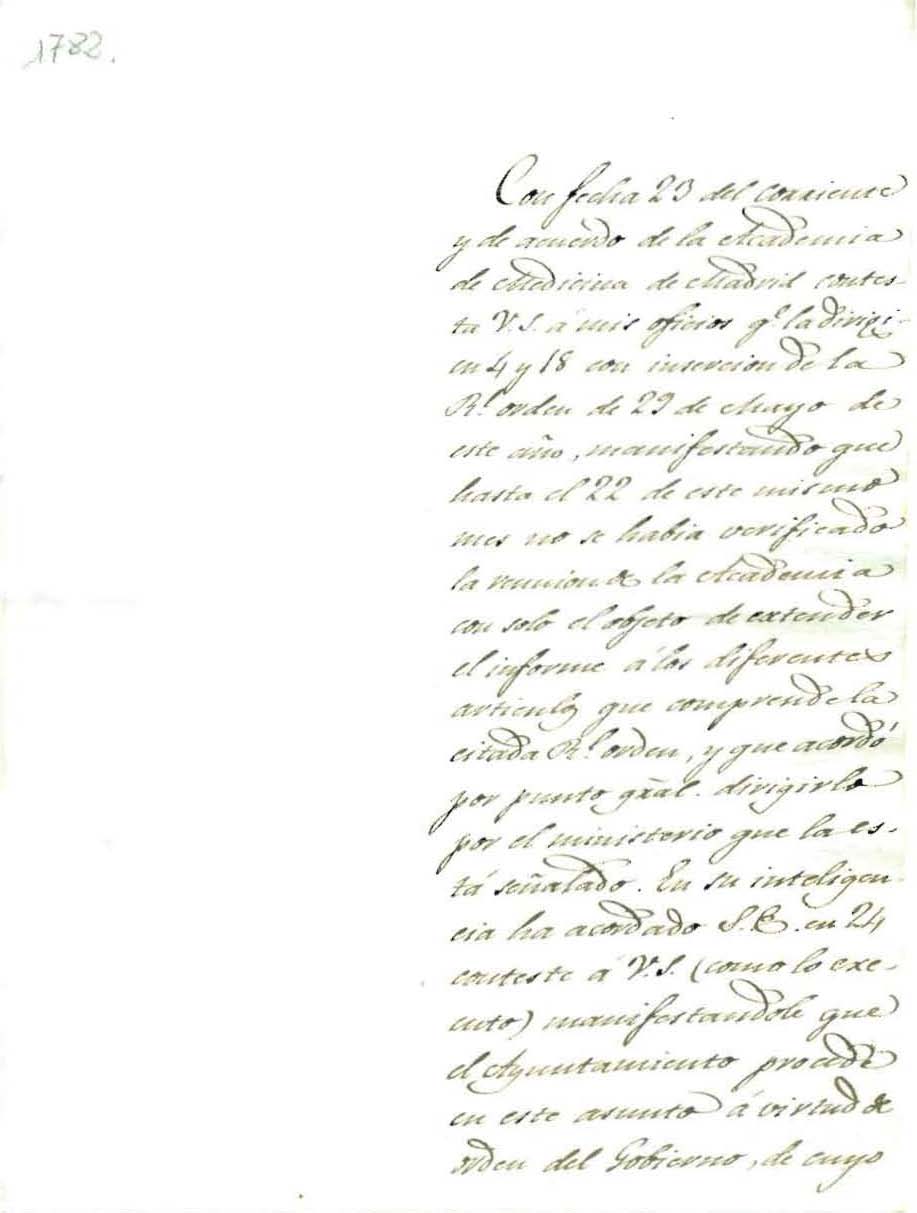 1782.
Con fecha 23 del corriente
y de acuerdo de la Academia
de Medicina de Madrid contes-
ta V.S. á mis oficios q.e la dirigi
en 4 y 18 con insercion de la
R.l orden de 29 de Mayo de
este año, manifestando que
hasta el 22 de este mismo
mes no se habia verificado
la reunion de la Academia
con solo el objeto de extender
el informe á los diferentes
articulos que comprende la
citada R.l orden, y que acordó
por punto gral. dirigirlo
por el ministerio que la es-
tá señalado. En su inteligen-
cia ha acordado S.E. en 24
conteste á V.S. (como lo exe-
cuto) manifestandole que
el Ayuntamiento procede
en este asunto á virtud de
orden del Gobierno, de cuyo